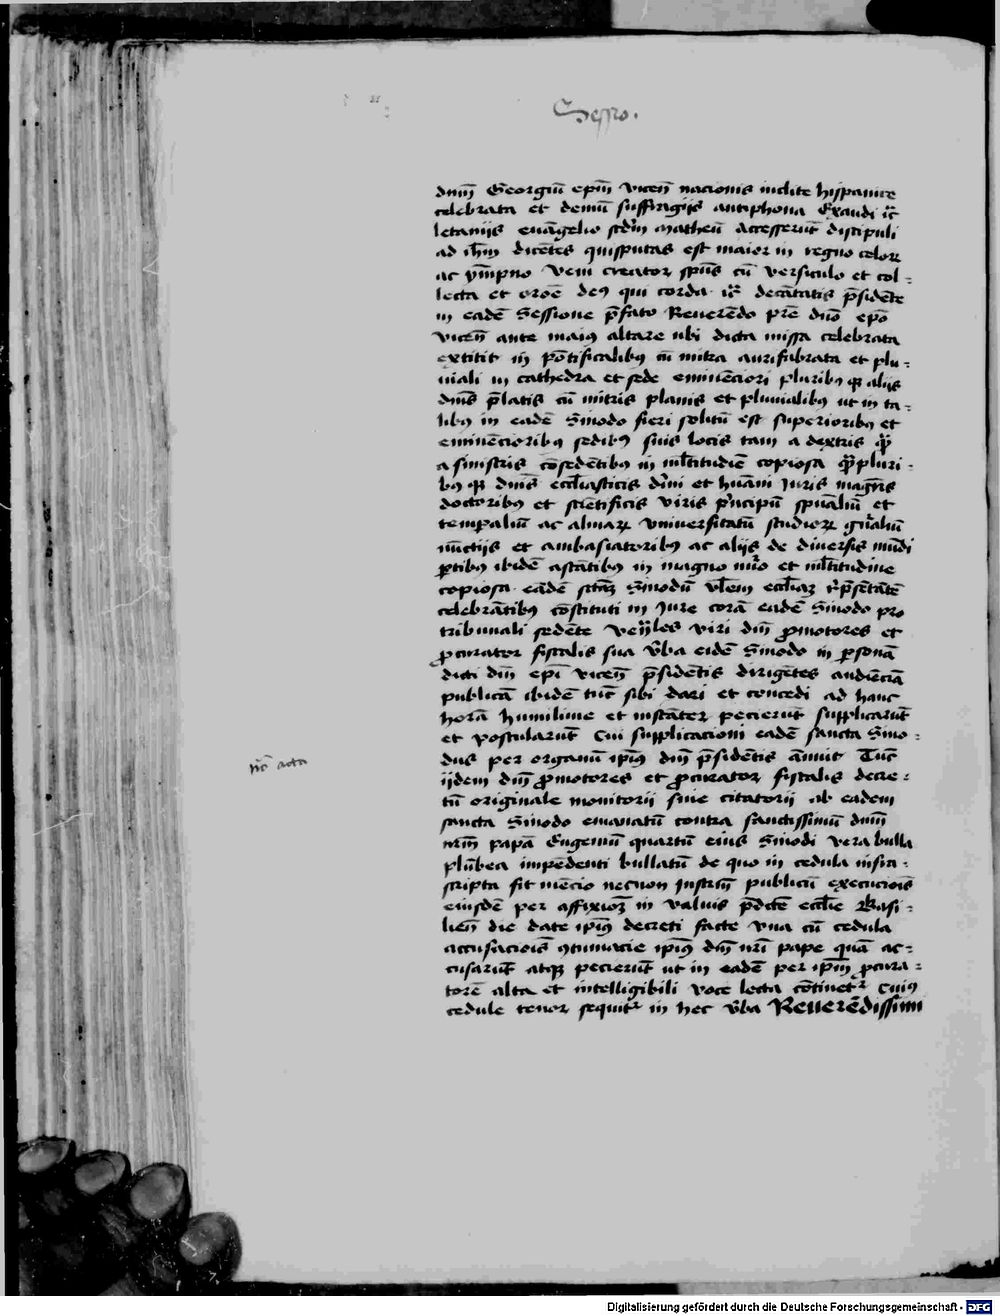 Sessio.
dnm̄ Georgiū ep̄m vicen̄ nacionis inclite hispanice
celebrata et demū suffragijs antiphona Exaudi ic̄
letanijs euāngelio scdm̄ matheū Accesserūt discipuli
ad ih̄m dicētes quisputas est maior in regno celoꝝ
ac ympno veni creator spūs cū versiculo et col-
lecta et oroē deꝰ qui corda ic̄ decātatis p̄sidēte
in eadē Sessione p̄fato Reuerēdo prē dn̄o ep̄o
vicen̄ ante maiꝰ altare ubi dicta missa celebrata
extitit in pōtificalibꝰ cū mitra aurifabrata et plu-
uiali in cathedra et sede eminēciori pluribꝰ qꝫ alijs
dn̄is p̄latis cū mitris planis et pluuialibꝰ ut in ta-
libꝰ in eadē Sinodo fieri solitū est superioribꝰ et
eminēcioribꝰ sedibꝰ suis locis tam a dextris qͣ̄
a sinistris cōsedētibꝰ in ml̄titudiē copiosa qͣ̄pluri-
bꝰ qꝫ dn̄is eccl̄iasticis diuī et hūani Juris magrīs
doctoribꝰ et sciētificis viris prīcipū spūaliū et
temporaliū ac almaꝝ vniuersitatū studioꝝ gn̄raliū
nūctijs et ambasiatoribꝰ ac alijs de diuersis mūdi
ꝑtibꝰ ibidē astātibꝰ in magno nūo et ml̄titudine
copiosa eādē sctāꝫ Sinodū vl̄em eccl̄iaꝫ rp̄sētātē
celebrātibꝰ cōstituti in Jure corā eadē Sinodo pro
tribunali sedēte veīles viri dn̄i ꝓmotores et
ꝓcurator fiscalis sua v̄ba eidē Sinodo in ꝑsonā
dicti dn̄i ep̄i vicen̄ p̄sidētis dirigētes audiēciā
publicā ibidē tūc sibi dari et concedi ad hanc
horā humilime et instāter pecierūt supplicarūt
et postularūt Cui supplicacioni eadē sancta Sino-
dus per organū ip̄iꝰ dn̄i p̄sidētis ānuit Tūc
ijdem dn̄i ꝓmotores et ꝓcurator fiscalis decre-
tū originale monitorii siue citatorii ab eadem
sancta Sinodo emanatū contra sanctissimū dnm̄
nrm̄ papā Eugeniū quartū eius Sinodi vera bulla
plūbea impēdenti bullatū de quo in cedula infra-
scripta fit mēcio necnon Instrm̄ publicū execuciōis
eiusdē per affixioꝫ in valuis p̄dcte eccl̄ie Basi-
lien̄ die date ip̄iꝰ decreti facte vna cū cedula
accusaciois ꝯtumacie ip̄iꝰ dn̄i nr̄i pape quā ac-
cusarūt atqꝫ pecierūt ut in eadē per ip̄m ꝓcura-
torē alta et intelligibili voce lecta cōtinetr̄ cuiꝰ
cedule tenor sequitr̄ in hec v̄ba Reuerēdissimi
acta
Digitalisierung gefördert durch die Deutsche Forschungsgemeinschaft - DFG